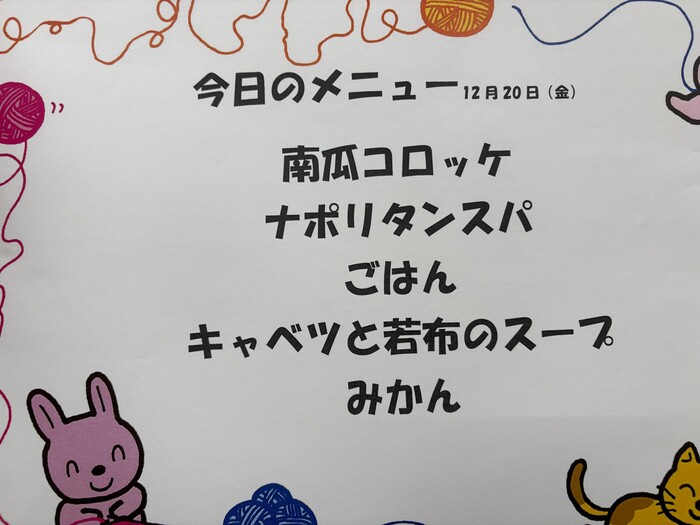 今日のメニュー12月20日（金）
南瓜コロッケ
ナポリタンスパ
ごはん
キャベツと若布のスープ
みかん